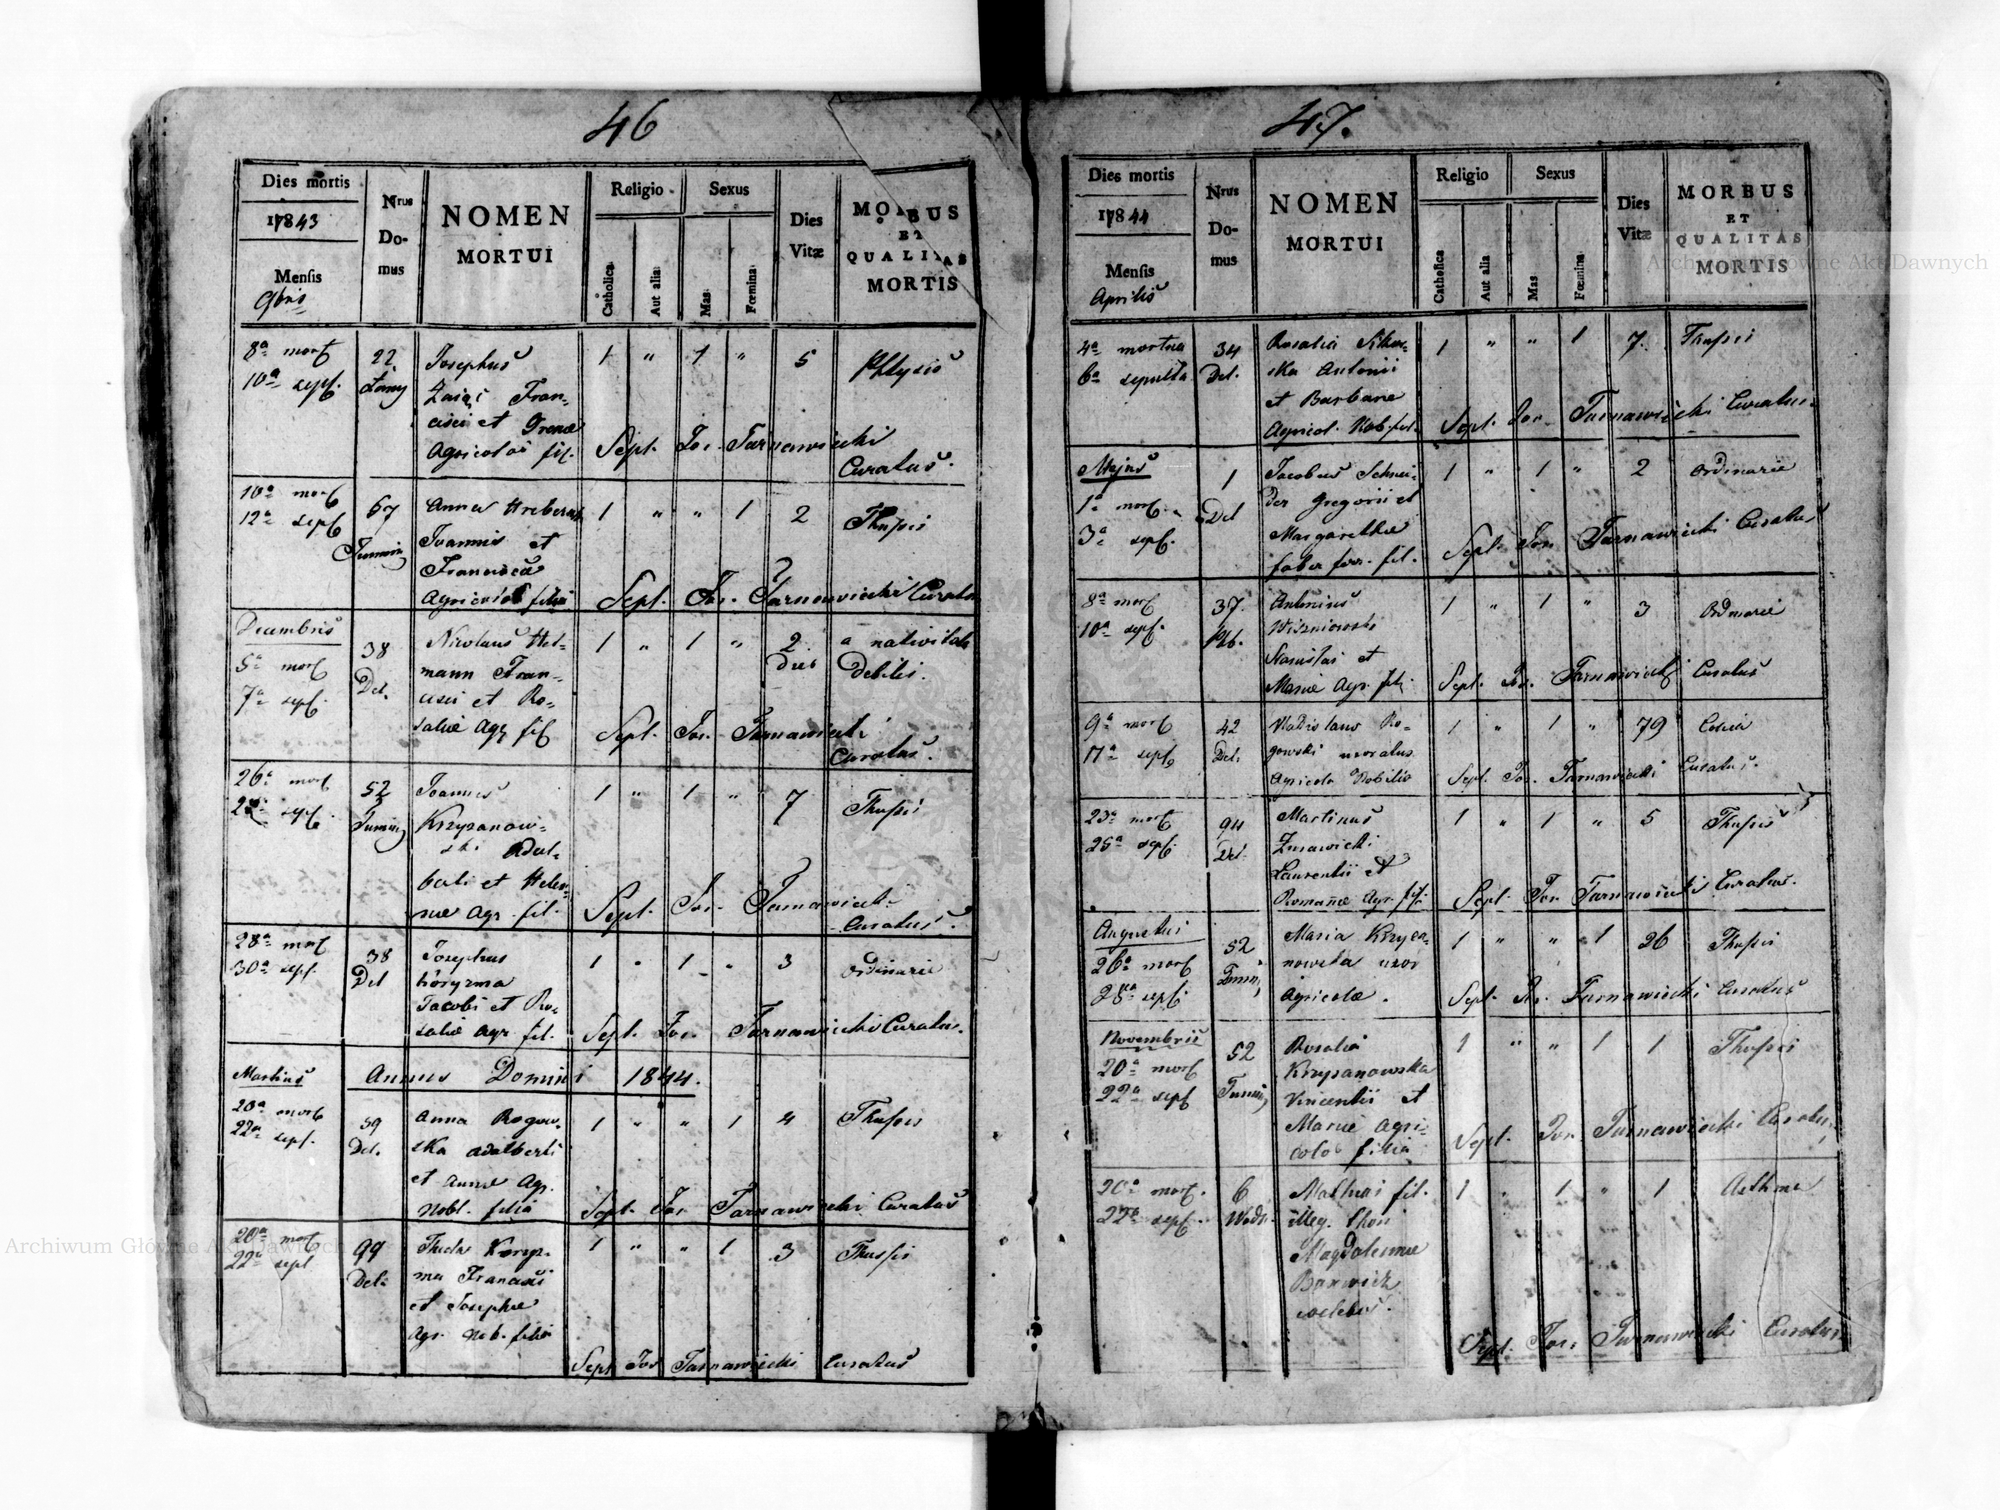 46
Dies mortis
1843
Mensis
9bris
Nrus
Do-
mus
NOMEN
MORTUI
Religio
Catholica
Aut alia
Sexus
Mas
Fœmina
Dies
Vitæ
MORBUS
ET
QUALITAS
MORTIS
8a mort
10a sepf.
22
Josephus
Zaiąi Fran-
cisci et Irenæ
Agricolai fil.
1 " 1 " 5
Phtysis
Sept. Jos. Tarnawiecki
Curatus.
10a mort
12a sepf
67
Tumin
Anna Hreberuk
Joannis et
Francisca
Agricolæ filia
1 " " 1 2
Thussis
Sept. Jos. Tarnawiecki Curatus
Decembris
5a mort
7a sepf.
38
Del.
Nicolaus Hel-
mann Fran-
cisci et Ro-
saliæ Agr fil
1 " 1 " 2
Dies
a nativitate
Debilis.
Sept. Jos. Tarnawiecki
Curatus.
26a mort
sepf.
52
Tumin
Joannes
Krzyzanow-
ski Adal-
berti et Hele-
næ Agr. fil.
1 " 1 " 7
Thussis
Sept. Jos. Tarnawiecki
Curatus.
28a mort
30a sepf.
38
Del
Josephus
Koryzma
Jacobi et Ro-
saliæ Agr. fil.
1 " 1 " 3
Ordinarie
Sept. Jos. Tarnawiecki Curatus.
Martius
Annus Domini 1844.
20a mort
22a sepf.
59
Del.
Anna Rogow-
ska Adalberti
et Annæ Agr.
Nobl. filia
1 " " 1 4
Thussis
Sept. Jos. Tarnawiecki Curatus
20a mort
22a sept
99
Del.
Thecla Koryz-
ma Francisci
et Josephæ
Agr. Nob. filia
1 " " 1 3
Thussis
Sept Jos Tarnawiecki Curatus
47.
Dies mortis
1844
Mensis
Aprilis
Nrus
Do-
mus
NOMEN
MORTUI
Religio
Catholica
Aut alia
Sexus
Mas
Fœmina
Dies
Vitæ
MORBUS
ET
QUALITAS
MORTIS
4a mortua
6a sepulta
34
Del.
Rosalia Sikor-
ska Antonii
et Barbaræ
Agricol. Nob. fil.
1 " " 1 7.
Thussis
Sept. Jos. Tarnawiecki Curatus
Majus
1a mort.
3a sepf.
1
Del
Jacobus Schnei-
der Gregorii et
Margarethæ
faber ferr. fil.
1 " 1 " 2
Ordinarie
Sept. Jos. Tarnawiecki Curatus
8a mort
10a sepf.
37.
Antonius
Wiszniowski
Stanislai et
Mariæ Agr. fil
1 " 1 " 3
Ordinarie
Sept. Jos. Tarnawiecki Curatus
9a mort
17a sept
42
Del.
Wladislaus Ro-
gowski uxoratus
Agricola Nobilis
1 " 1 " 79
Colica
Sept. Jos. Tarnawiecki Curatus.
23a mort
25a sepf.
94
Del.
Martinus
Zurawicki
Laurentii et
Romanæ Agr. fil.
1 " 1 " 5
Thussis
Sept. Jos. Tarnawiecki Curatus.
Augustus
26a mort
28va sepf
52
Tumin
Maria Krzyza-
nowska uxor
Agricolæ.
1 " " 1 26
Thussis
Sept. Jos. Tarnawiecki Curatus
Novembris
20a mort
22a sepf
52
Tumin
Rosalia
Krzyzanowska
Vincentii et
Mariæ Agri-
colæ filia
1 " " 1 1
Thussis
Sept. Jos. Tarnawiecki Curatus
20a mort.
22a sepf.
6
Mathias fil.
illeg. thori
Magdalennæ
Barwicz
coelebs.
1 " 1 " 1
Asthma
Sept. Jos. Tarnawiecki Curatus
Archiwum Główne Akt Dawnych
Archiwum Główne Akt Dawnych